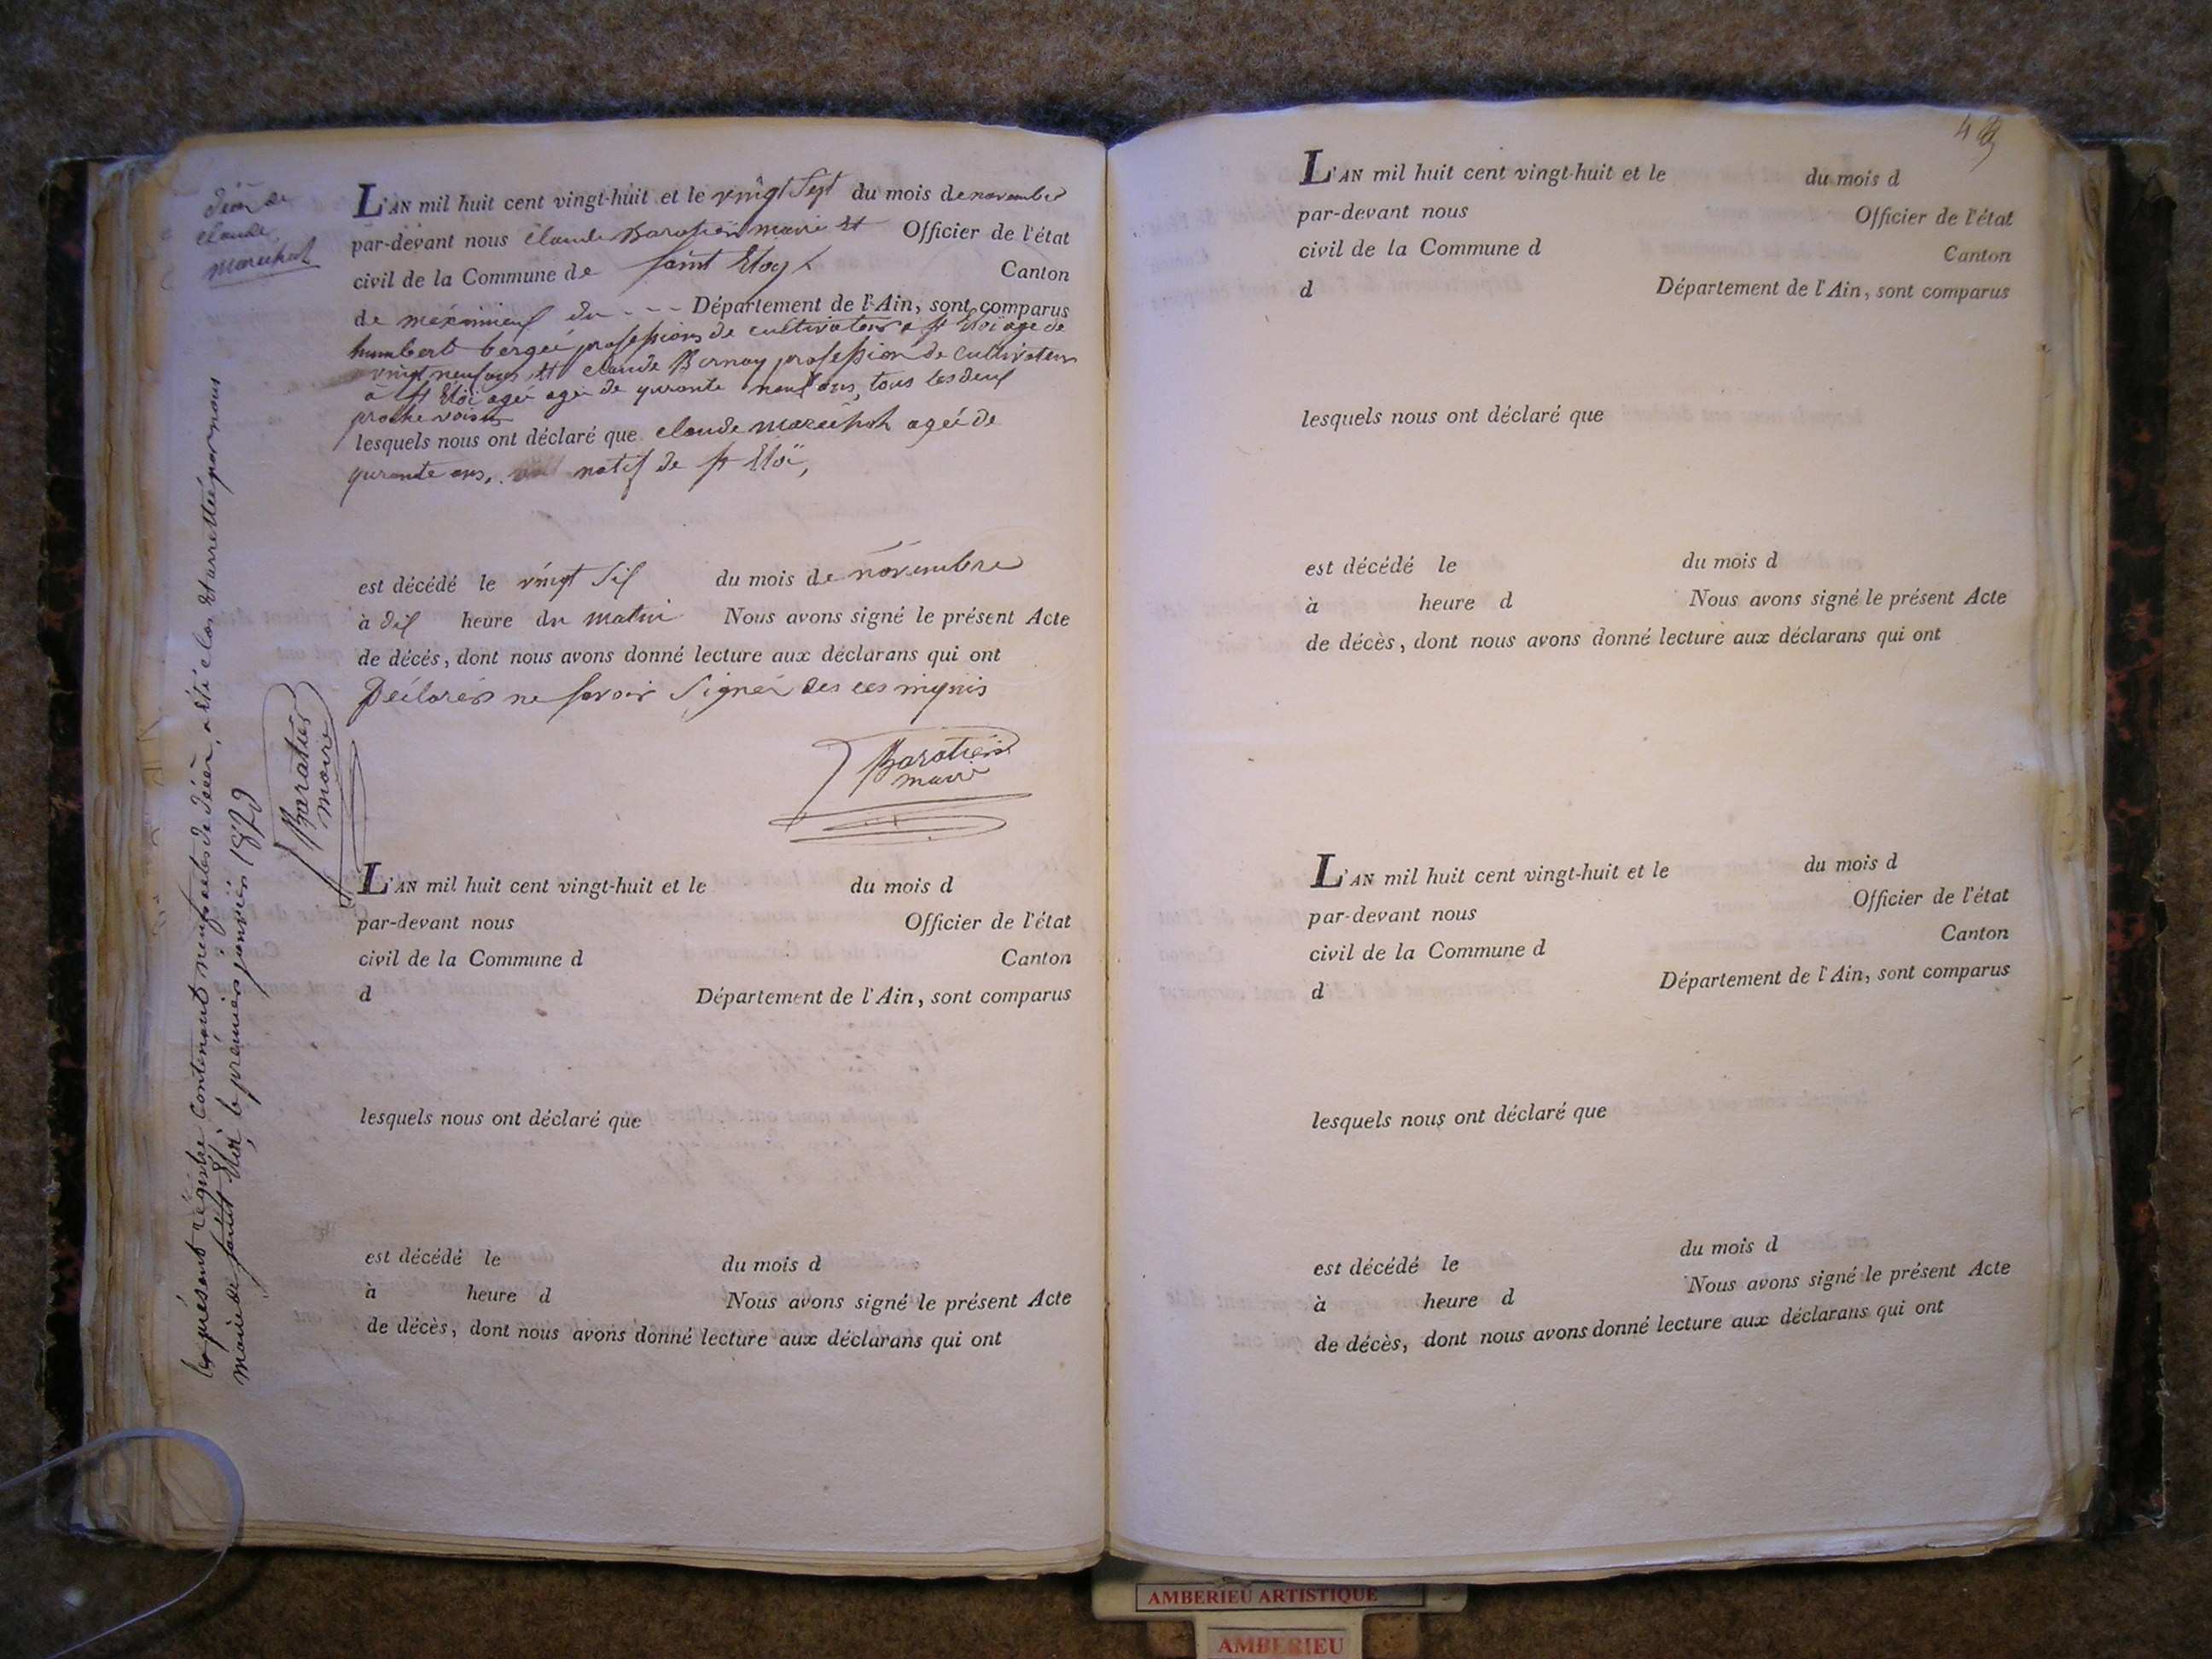 décè de
claude
marechal
L'AN mil huit cent vingt-huit et le vingt Sept du mois de novembre
par-devant nous Claude Baratier maire et Officier de l'état
civil de la Commune de saint Eloy Canton
de meximieux du - - - Département de l'Ain, sont comparus
humbert bergér profession de cultivateur a st Eloi age de
vingt neuf ans, et claude Bernay profession de cultivateur
a st Eloï agér agé de qurante neuf ans, tous les deux
proche voisin
lesquels nous ont déclaré que claude marechal ageé de
qurante ans, natif de st Eloï,
est décédé le vingt six du mois de novembre
à dix heure du matin Nous avons signé le présent Acte
de décés, dont nous avons donné lecture aux déclarans qui ont
Déclarés ne savoir Signér des ces
Baratier
maire
le présent régistre Contenant neuf actes de décèr, a été clos et arretté par nous
maire de saint Eloi le premier janvier 1829
Baratier
maire
L'AN mil huit cent vingt-huit et le du mois d
par-devant nous Officier de l'état
civil de la Commune d Canton
d Département de l'Ain, sont comparus
lesquels nous ont déclaré que
est décédé le du mois d
à heure d Nous avons signé le présent Acte
de décès, dont nous avons donné lecture aux déclarans qui ont
L'AN mil huit cent vingt-huit et le du mois d
par-devant nous Officier de l'état
civil de la Commune d Canton
d Département de l'Ain, sont comparus
lesquels nous ont déclaré que
est décédé le du mois d
à heure d Nous avons signé le présent Acte
de décès, dont nous avons donné lecture aux déclarans qui ont
L'AN mil huit cent vingt-huit et le du mois d
par-devant nous Officier de l'état
civil de la Commune d Canton
d Département de l'Ain, sont comparus
lesquels nous ont déclaré que
est décédé le du mois d
à heure d Nous avons signé le présent Acte
de décès, dont nous avons donné lecture aux déclarans qui ont
AMBERIEU ARTISTIQUE
AMBERIEU